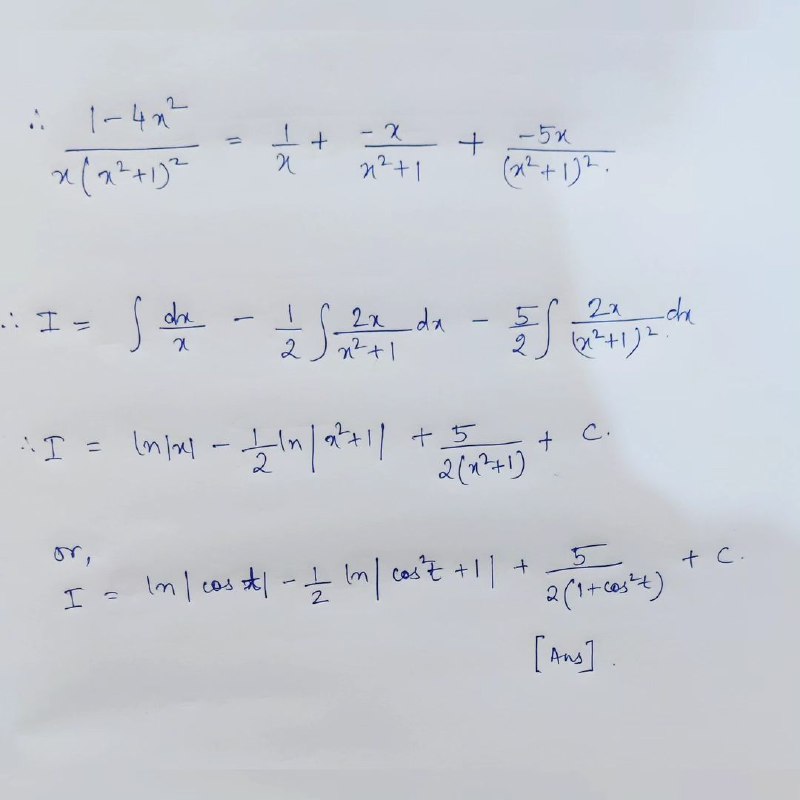 ∴ (1-4x²)/(x(x²+1)²) = 1/x + (-x)/(x²+1) + (-5x)/(x²+1)².
∴ I = ∫ dx/x - 1/2 ∫ 2x/(x²+1) dx - 5/2 ∫ 2x/(x²+1)² dx
∴ I = ln|x| - 1/2 ln|x²+1| + 5/(2(x²+1)) + C.
or,
I = ln|cos t| - 1/2 ln|cos²t +1| + 5/(2(1+cos²t)) + C.
[Ans].